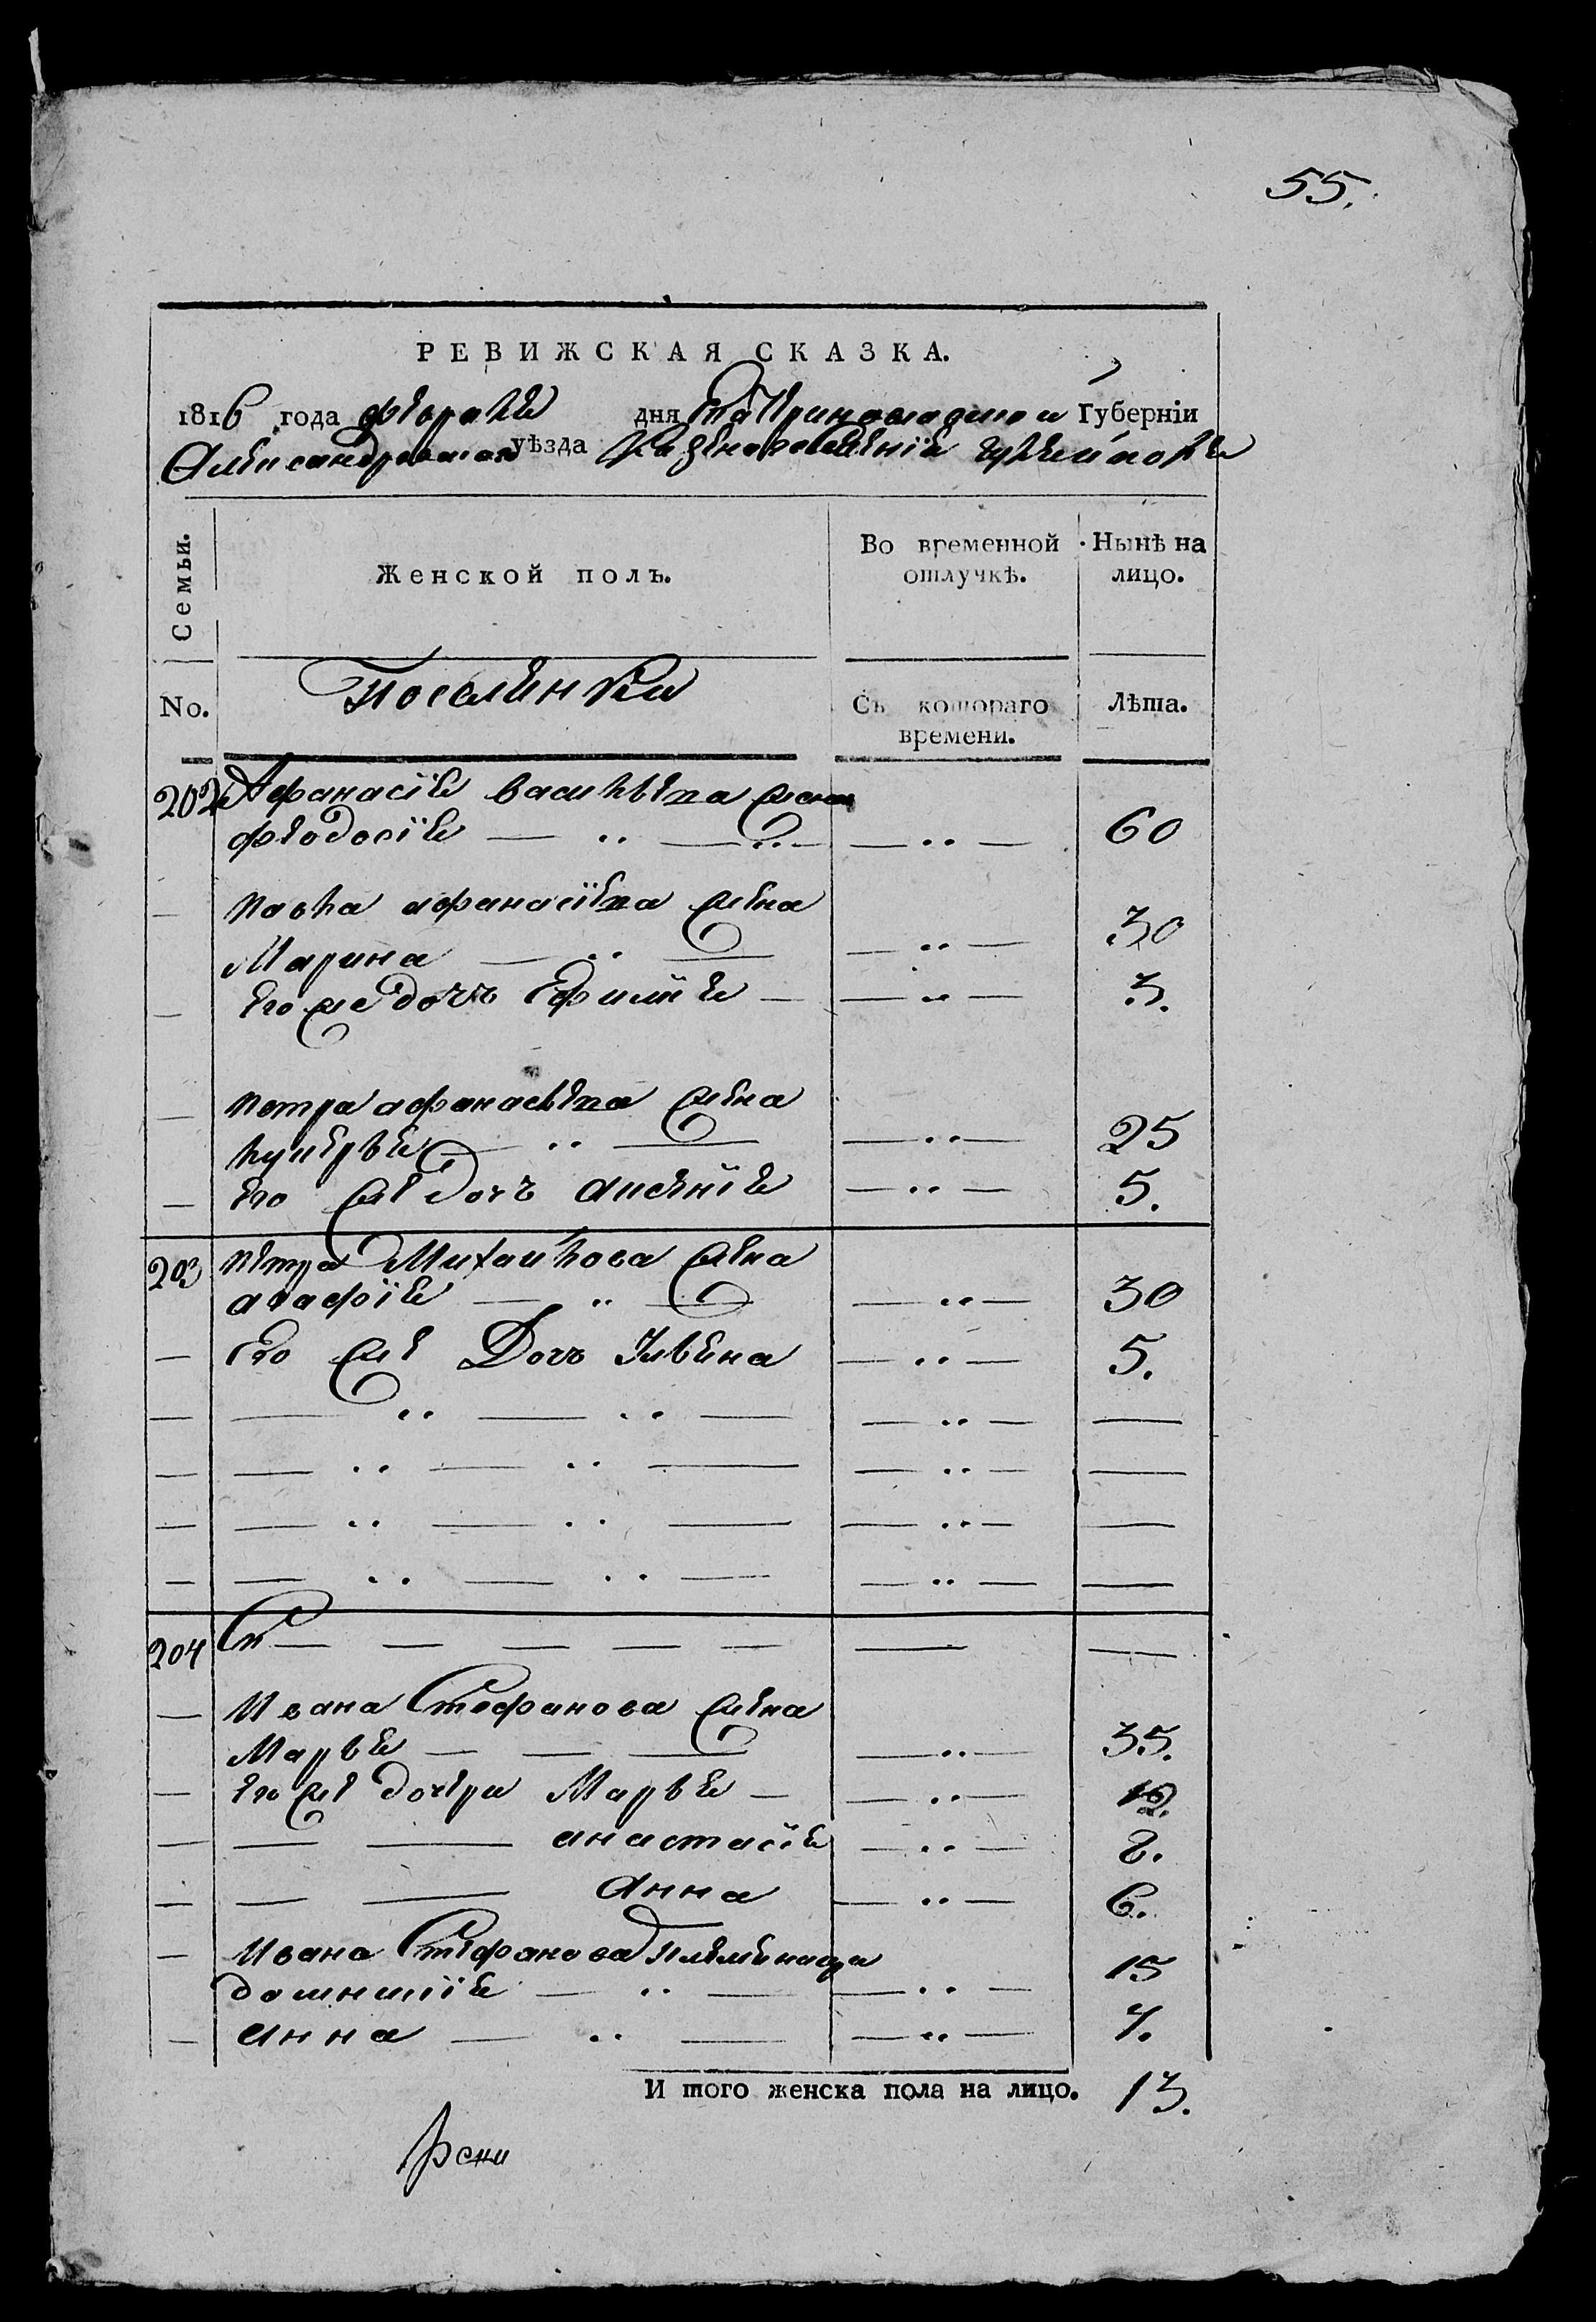 55.
РЕВИЖСКАЯ СКАЗКА.
1816 года февраля дня Екатеринославской Губерніи
Александровскаго уѣзда казеннаго селенія гуляйполя
Семьи.
Женской полъ.
Во временной отлучкѣ.
Нынѣ на лицо.
No.
Поселянки
Съ котораго времени.
Лѣта.
202 Афанасія васильева жена
феодосія — „ — „ — — „ — 60
— павла афанасіева жена
Марина — „ — — „ — 30
— Его же дочь Ефимія — — „ — 3.
— петра афанасьева жена
лукерья — „ — — „ — 25
— Его же дочь Аксенія — „ — 5.
203 петра Михайлова жена
агафія — „ — — „ — 30
— Его же Дочь Ульяна — „ — 5.
— — „ — „ — — „ — —
— — „ — „ — — „ — —
— — „ — „ — — „ — —
— — „ — „ — — „ — —
204 — — — — — — —
— Ивана Стефанова жена
Марья — — — — „ — 35.
— Его же дочери Марья — — „ — 12.
— — — анастасія — „ — 8.
— — — Анна — „ — 6.
— Ивана Стефанова племянница
домникія — „ — — „ — 15
— Анна — „ — — „ — 7.
И того женска пола на лицо. 13.